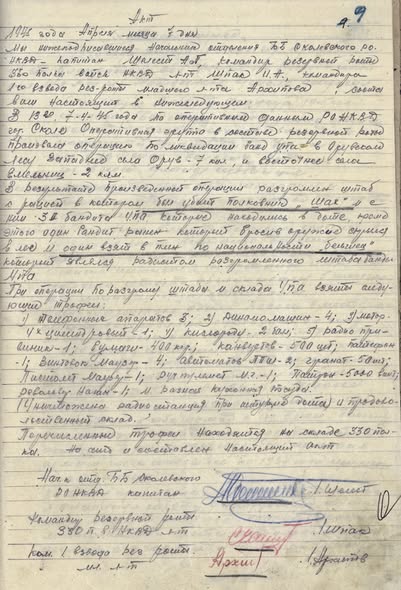 9
Акт
1946 года Апреля месяца 7 дня
Мы нижеподписавшиеся Начальник отделения ББ Сколевского ро
НКВД - капитан Шолест, командир резервной роты
330 полка войск НКВД л-т Шпак, командира
1го взвода рез-роты младшего л-та Архипова, составили
наш настоящий в нижеследующем:
В 13 7-4-46 года по оперативным данным РО НКВД
гор. Сколе Оперативная группа в составе резервной роты
произвела операцию по ликвидации банд упа в Одувском
лесу Западнее села Орув - 7 клм, и восточнее села
- 2 клм
В результате произведенной операции разгромлен штаб
с рацией в котором был убит полковник "Шах" и с
ним 3 бандита УПА которые находились в доте, кроме
этого один бандит ранен который бросив оружие скрылся
в лес и один взят в плен по национальности
который являлся радистом разгромленного штаба банды
УПА
При операции по разгрому штаба и склада УПА взяты следу
ющие трофеи:
1) Телефонных аппаратов 3; 2) машин - 4; 3) мотор
- 1; 4) кислорода - 2 5) радио при
емник - 1; бумаги - 400 конвертов - 500 шт;
- 1; Винтовок Маузер - 4; Автоматов - 2; гранат - 50 шт;
Пистолет Маузер - 1; Руч. пулемет - 1; Патрон - 5000 шт;
револьвер Наган - 1; и разная кухонная посуда.
Уничтожена радиостанция при штурме дота и продово-
льственный склад.
Перечисленные трофеи находятся на складе 330 пол-
ка. На что и составлен настоящий акт
Нач отд. ББ Сколевского
РО НКВД капитан / Шолест
Командир резервной роты
330 п В НКВД л-т / Шпак
Ком. 1 взвода рез роты.
мл. л-т / Архипов